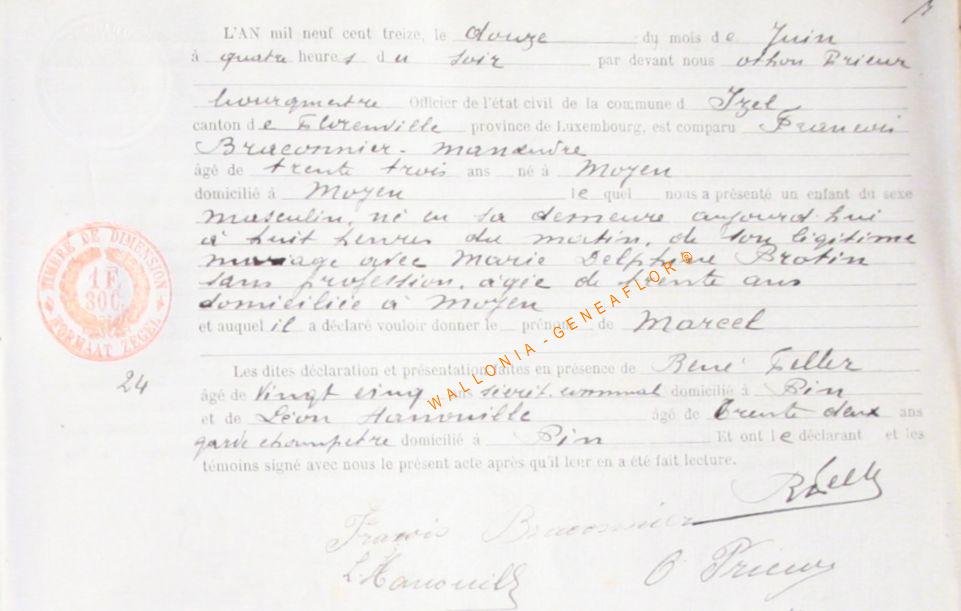 L'AN mil neuf cent treize, le douze du mois de Juin
à quatre heures du soir par devant nous Othon Prieur
bourgmestre Officier de l'état civil de la commune d Izel
canton de Florenville province de Luxembourg, est comparu François
Braconnier, manœuvre
âgé de trente trois ans né à Moyen
domicilié à Moyen lequel nous a présenté un enfant du sexe
masculin, né en sa demeure aujourd'hui
à huit heures du matin, de son légitime
mariage avec Marie Delphine Protin
sans profession, âgée de trente ans
domiciliée à Moyen
et auquel il a déclaré vouloir donner le prénom de Marcel
TIMBRE DE DIMENSION
1 F.
30 C.
FORMAAT ZEGEL
24
Les dites déclaration et présentation faites en présence de René Feller
âgé de Vingt cinq ans secrét. communal domicilié à Pin
et de Léon Hanouille âgé de trente deux ans
garde champêtre domicilié à Pin Et ont le déclarant et les
témoins signé avec nous le présent acte après qu'il leur en a été fait lecture.
François Braconnier
L Hanouille O Prieur
WALLONIA - GENEAFLOR ©